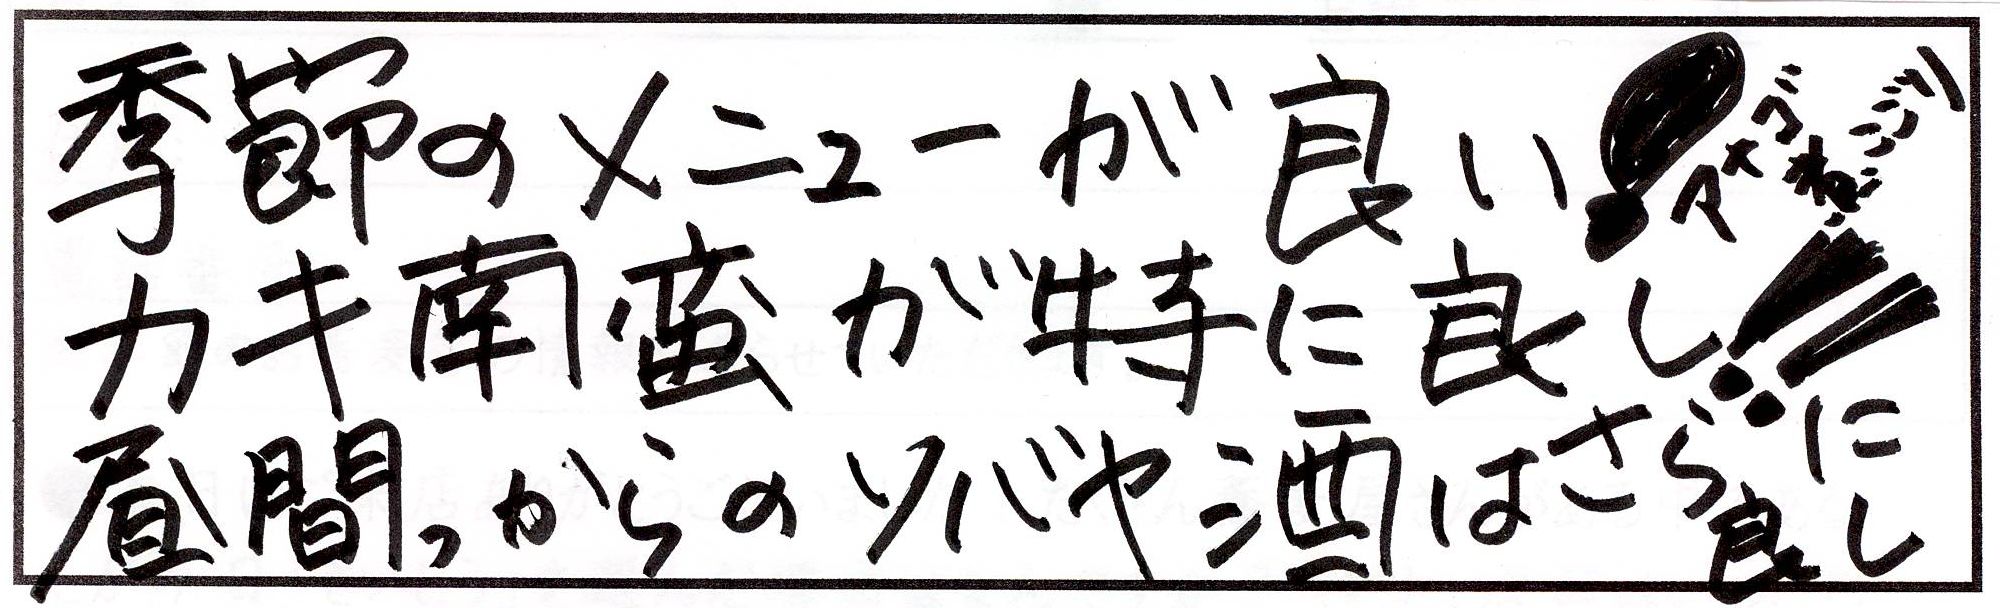 季節のメニューが良い!
カキ南蛮が特に良し!!
昼間っからのソバヤ酒はさらに良し